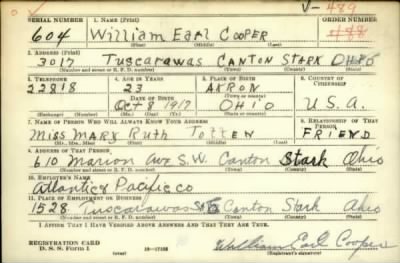 V- 489
SERIAL NUMBER 1. NAME (Print) ORDER NUMBER
604 William Earl Cooper 488
(First) (Middle) (Last)
2. ADDRESS (Print)
3017 Tuscarawas Canton Stark Ohio
(Number and street or R. F. D. number) (Town) (County) (State)
3. TELEPHONE 4. AGE IN YEARS 5. PLACE OF BIRTH 6. COUNTRY OF CITIZENSHIP
22818 23 AKRON
DATE OF BIRTH (Town or county)
Oct 8 1917 OHIO U.S.A.
(Exchange) (Number) (Mo.) (Day) (Yr.) (State or country)
7. NAME OF PERSON WHO WILL ALWAYS KNOW YOUR ADDRESS 8. RELATIONSHIP OF THAT PERSON
Miss Mary Ruth Totten FRIEND
(Mr., Mrs., Miss) (First) (Middle) (Last)
9. ADDRESS OF THAT PERSON
610 Marion Ave S.W. Canton Stark Ohio
(Number and street or R. F. D. number) (Town) (County) (State)
10. EMPLOYER'S NAME
Atlantic & Pacific co
11. PLACE OF EMPLOYMENT OR BUSINESS
1528 Tuscarawas Canton Stark Ohio
(Number and street or R. F. D. number) (Town) (County) (State)
I AFFIRM THAT I HAVE VERIFIED ABOVE ANSWERS AND THAT THEY ARE TRUE.
REGISTRATION CARD
D. S. S. Form 1 16-17105 William Earl Cooper
(Registrant's signature)